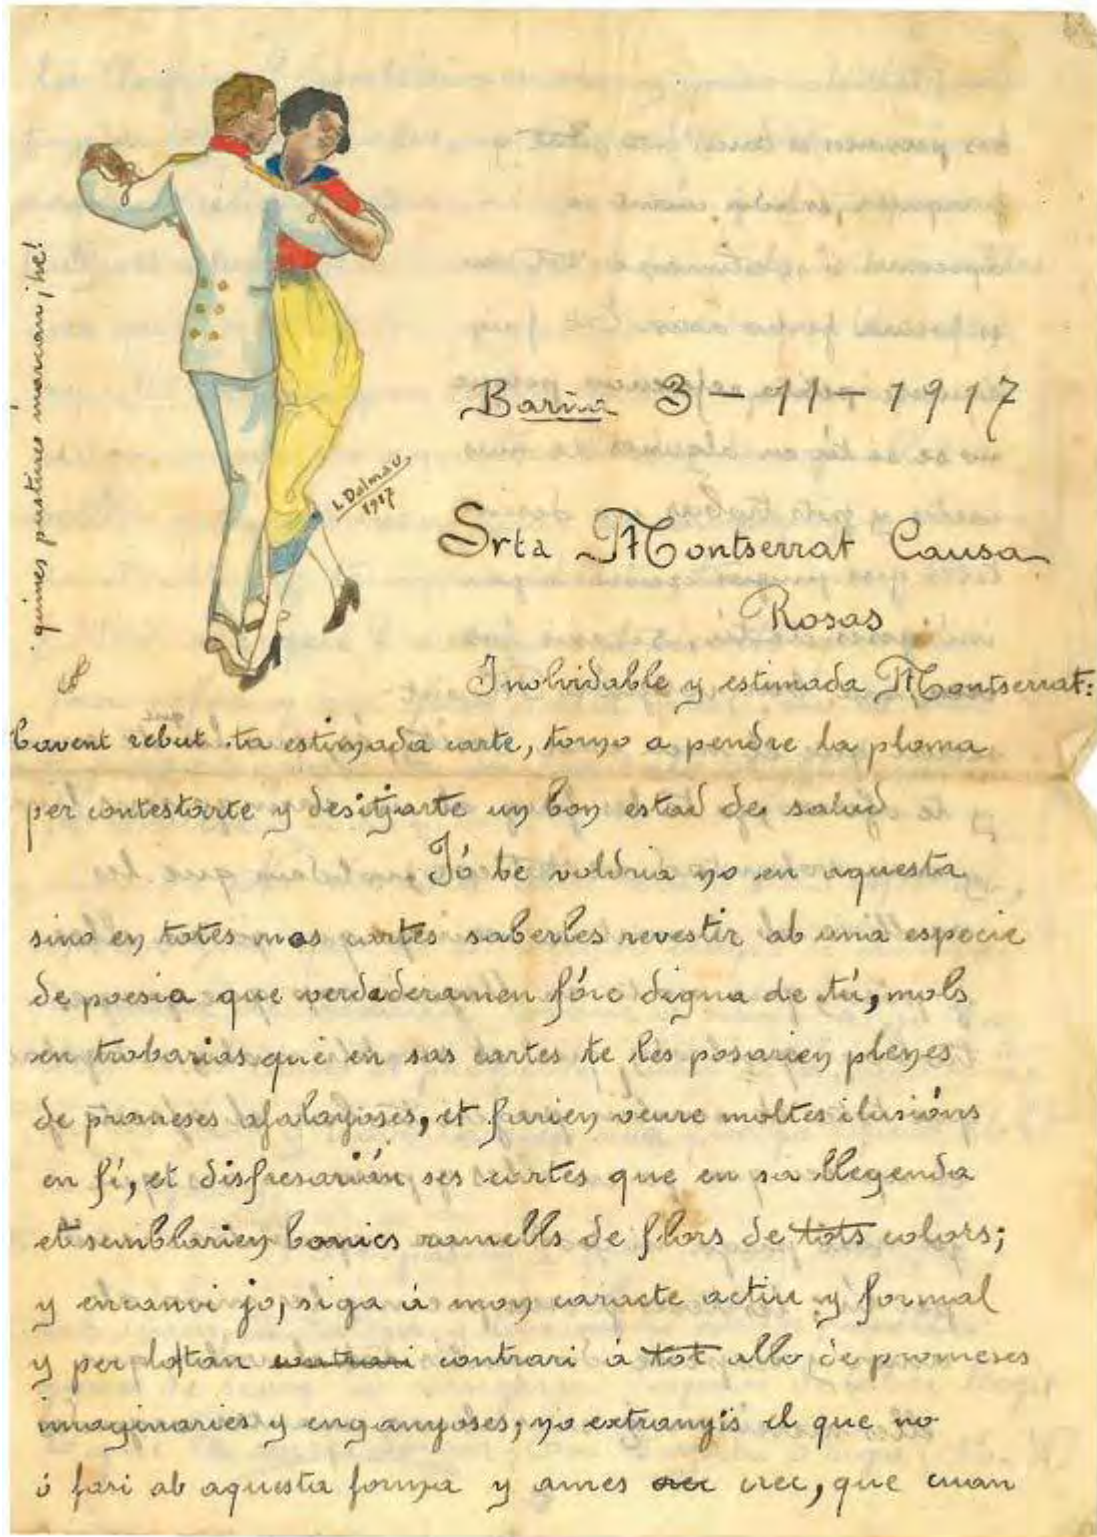 quines postures marcan ¡he!
L. Dalmau
1917
Barna 3-11-1917
Srta Montserrat Causa
Rosas
Inolvidable y estimada Montserrat:
Havent rebut ta estimada carte, torno a pendre la ploma
per contestarte y desitjarte un bon estad de salud
Jó be voldria no en aquesta
sino en totes mas cartes saberles revestir ab una especie
de poesia que verdaderamen fóre digna de tú, mols
en trobarias que en sas cartes te les posarien plenes
de promeses afalagoses, et farien veure moltes ilusións
en fí, et disfresarián ses cartes que en sa llegenda
et semblarien bonics ramells de flors de tots colors;
y encanvi jo, siga á mon caracte actiu y formal
y per lo tan contrari contrari á tot allo de promeses
imaginaries y enganyoses, no extranyis el que no
ó fasi ab aquesta forma y ames crec crec, que cuan